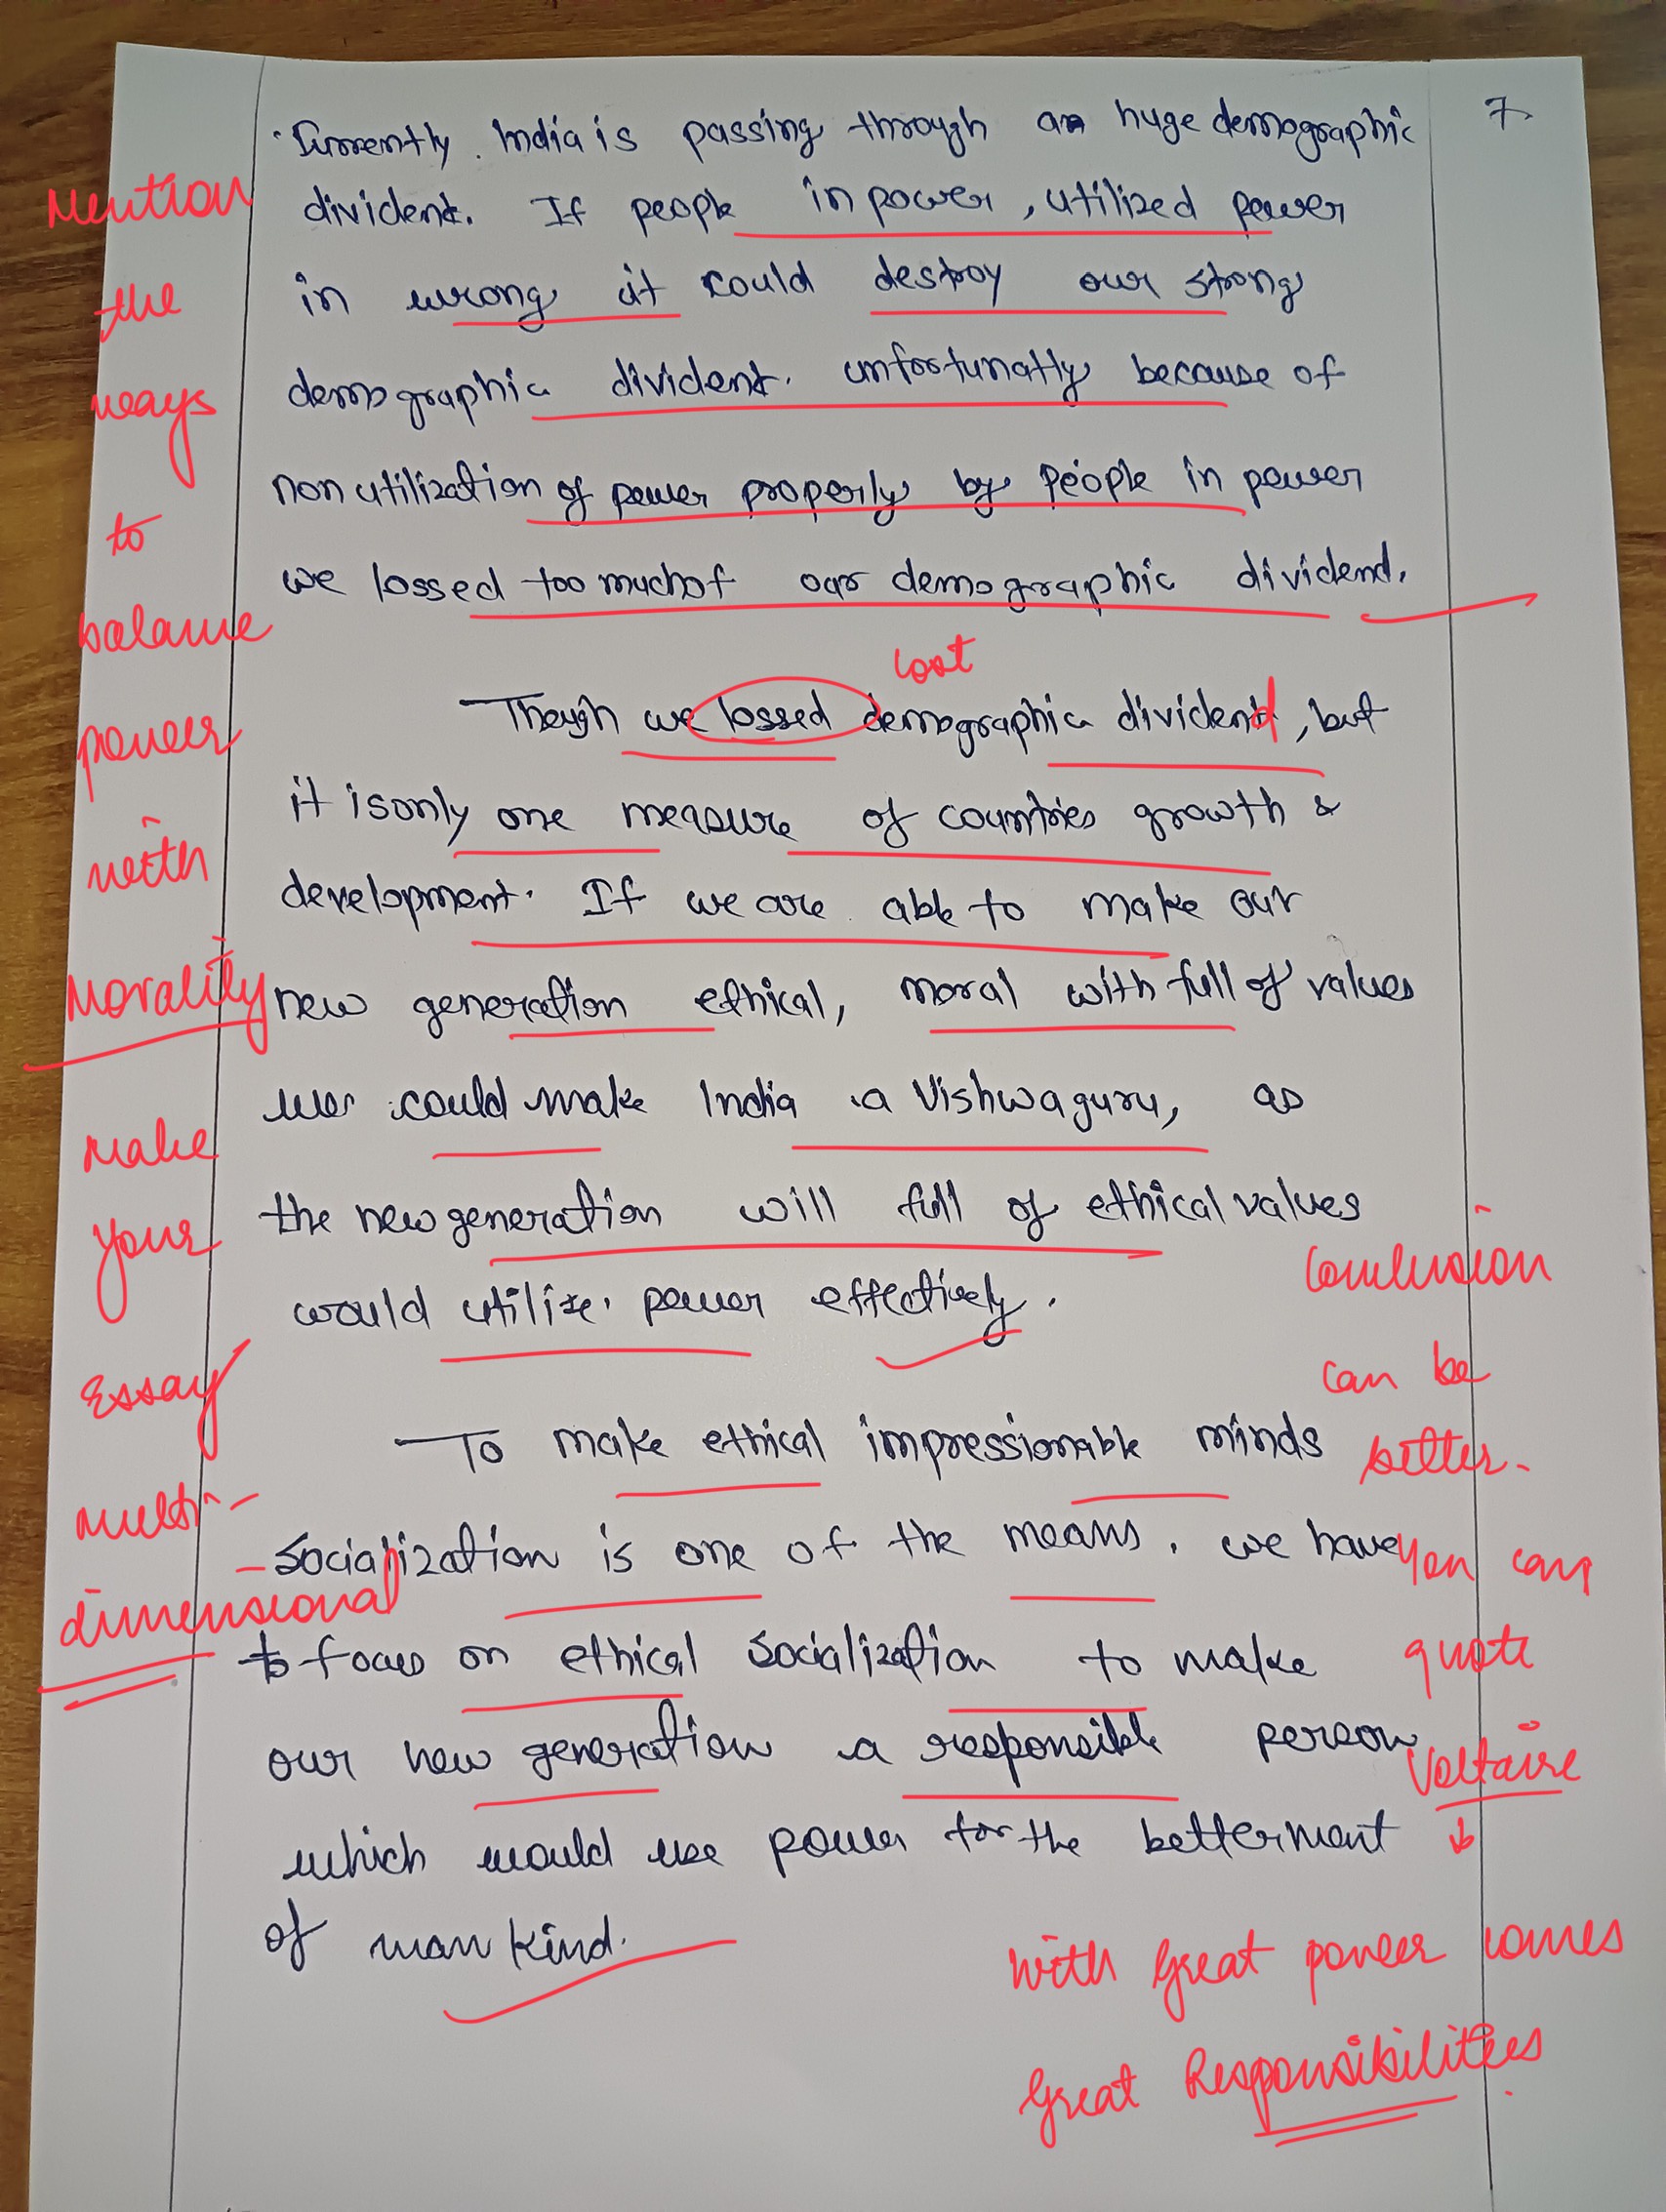 7.
Currently. India is passing through a huge demographic
divident. If people in power, utilized power
in wrong it could destroy our strong
demographic divident. unfortunatly because of
non utilization of power properly by people in power
we lossed too much of our demographic dividend.
lost
Though we lossed demographic dividend, but
it is only one measure of countries growth &
development. If we are able to make our
new generation ethical, moral with full of values
we could make India a Vishwaguru, as
the new generation will full of ethical values
would utilize power effectively.
To make ethical impressionable minds
socialization is one of the means. we have
to focus on ethical socialization to make
our new generation a responsible person
which would use power for the betterment
of man kind.
Mention
the
ways
to
balance
power
with
Morality
Make
your
Essay
multi-
- dimensional
Conclusion
can be
better.
You can
quote
Voltaire
↓
With Great power comes
Great Responsibilities